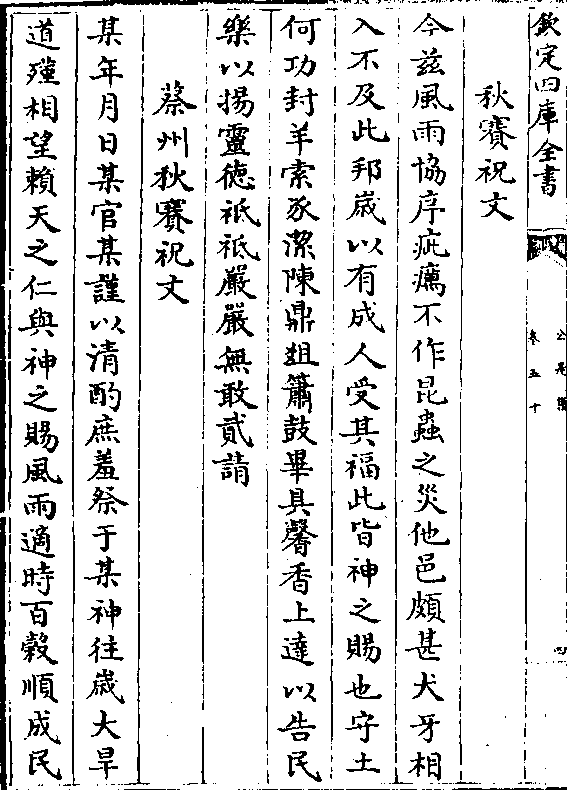 欽定四庫全書
公是集
卷五十
四
秋賽祝文
今茲風雨協序疵癘不作昆蟲之災他邑頗甚犬牙相
入不及此邦歲以有成人受其福此皆神之賜也守土
何功封羊索豕潔陳鼎俎簫鼓畢具馨香上達以告民
樂以揚靈德祗祗嚴嚴無敢貳請
蔡州秋賽祝文
某年月日某官某謹以清酌庶羞祭于某神往歲大旱
道殣相望賴天之仁與神之賜風雨適時百穀順成民